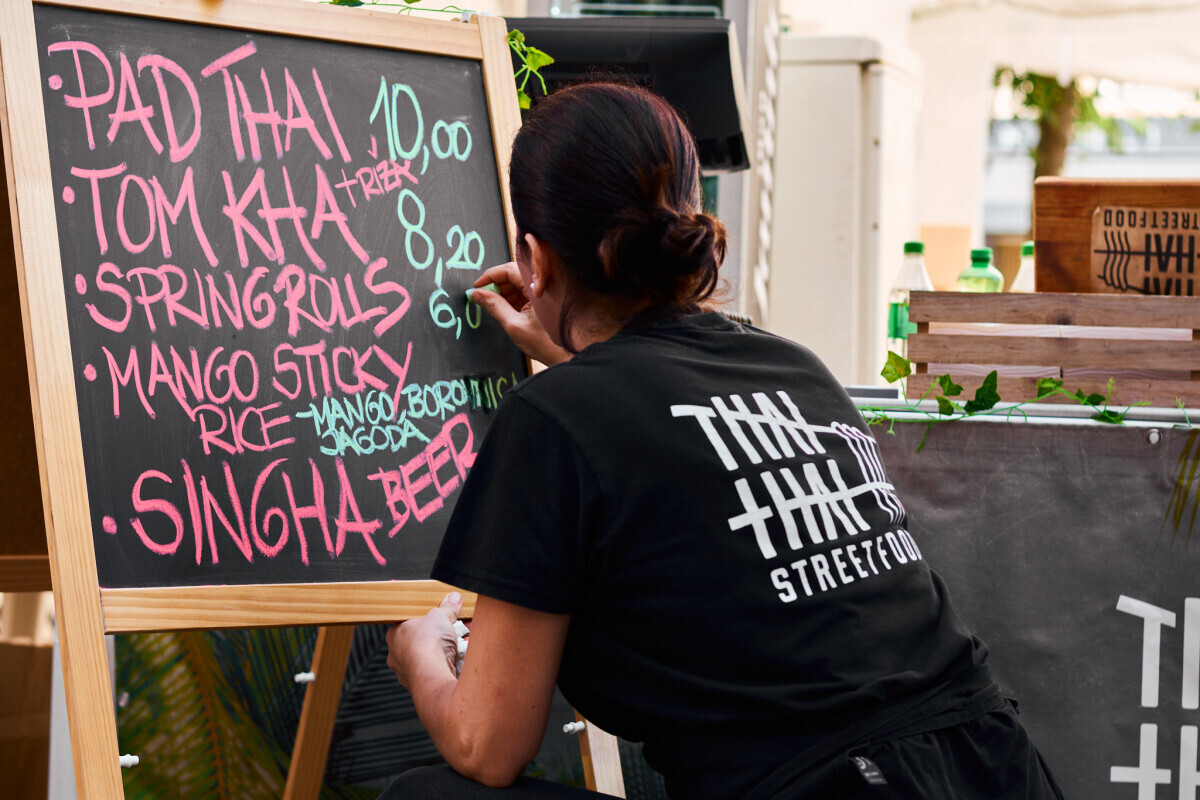 • PAD THAI 10,00
• TOM KHA + RIŽA 8,20
• SPRING ROLLS 6,0
• MANGO STICKY
RICE - MANGO, BOROVNICA
JAGODA
• SINGHA BEER
THAI
THAI
STREETFOOD
STREETFOOD
THAI